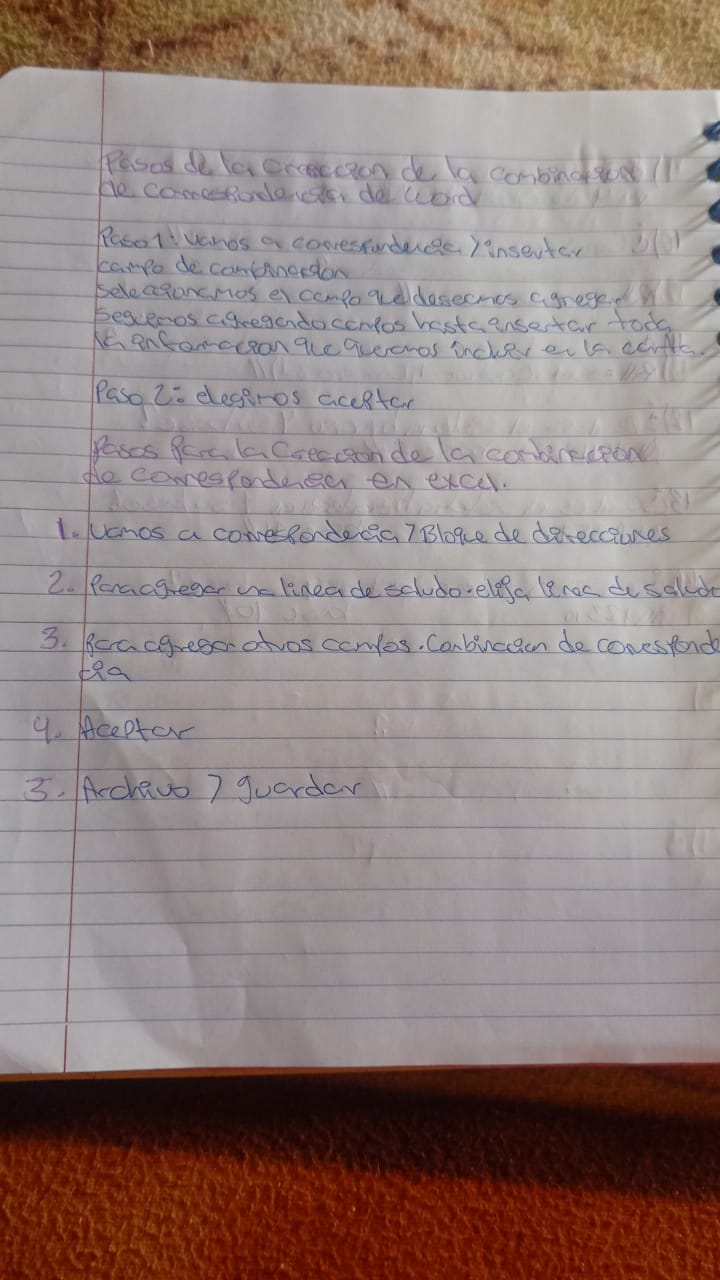 Pasos de la creaccion de la combinacion
de correspondencia de word
Paso 1: vamos a correspondencia > insertar
campo de combinacion
seleccionamos el campo que deseemos agregar
seguimos agregando campos hasta insertar toda
la informacion que queramos incluir en la carta.
Paso 2: elegimos aceptar
Pasos para la creacion de la combinacion
de correspondencia en excel.
1. vamos a correspondecia > Bloque de direcciones
2. Para agregar una linea de saludo. elija linea de saludo
3. para agregar otros campos. Conbinacion de corresponde
cia
4. Aceptar
5. Archivo > guardar